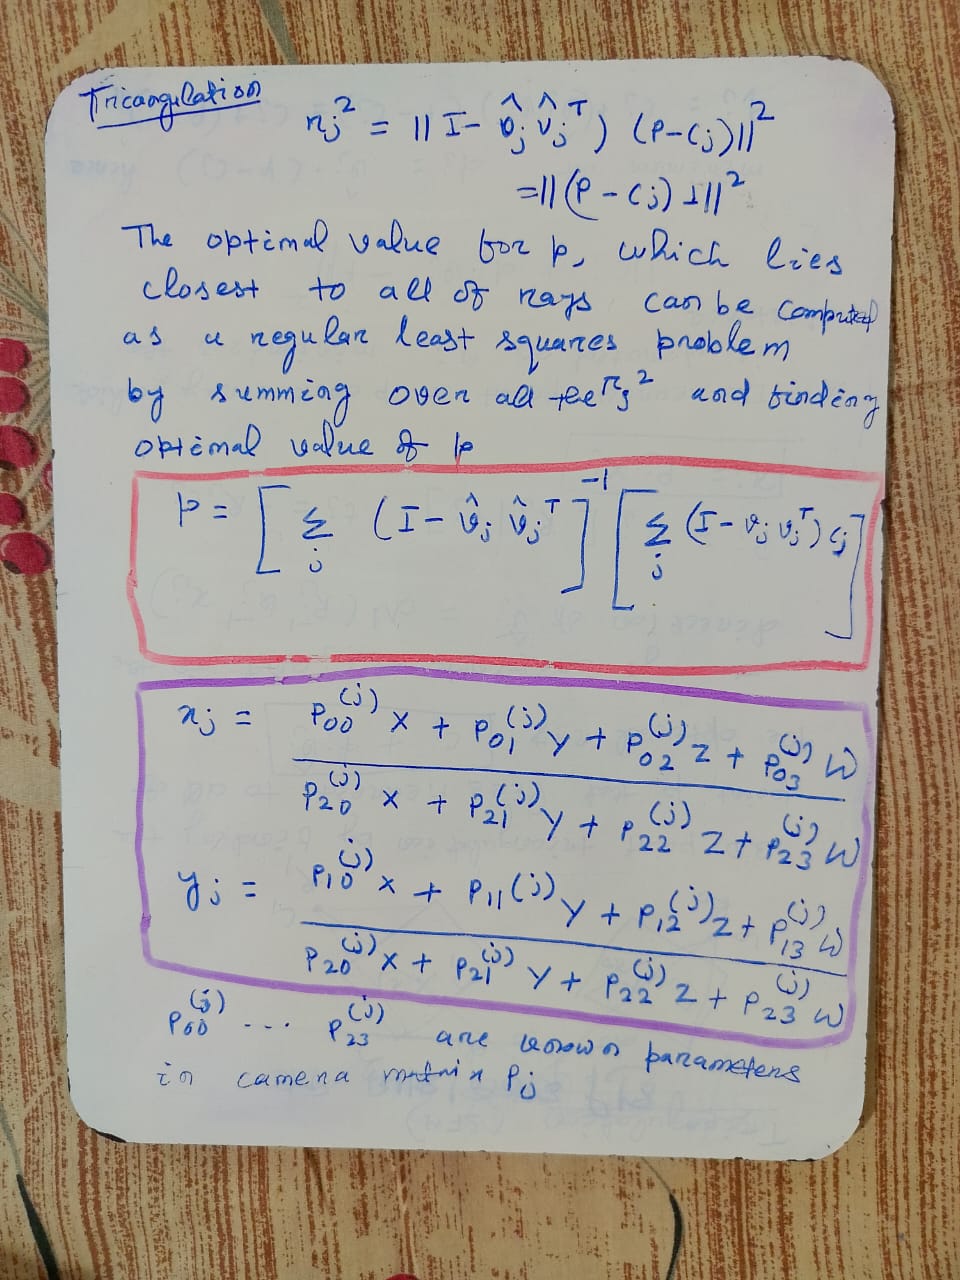 Triangulation
r_j² = || I - v̂_j v̂_jᵀ ) (P - C_j)||²
= || (P - C_j) ⊥||²
The optimal value for p, which lies
closest to all of rays can be computed
as a regular least squares problem
by summing over all the r_j² and finding
optimal value of p
p = [ Σ_j (I - v̂_j v̂_jᵀ ]⁻¹ [ Σ_j (I - v_j v_jᵀ) c_j ]
x_j = P₀₀^(j) X + P₀₁^(j) Y + P₀₂^(j) Z + P₀₃^(j) W
P₂₀^(j) X + P₂₁^(j) Y + P₂₂^(j) Z + P₂₃^(j) W
y_j = P₁₀^(j) X + P₁₁^(j) Y + P₁₂^(j) Z + P₁₃^(j) W
P₂₀^(j) X + P₂₁^(j) Y + P₂₂^(j) Z + P₂₃^(j) W
P₀₀^(j) ... P₂₃^(j) are known parameters
in camera matrix P_j